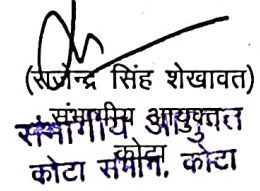 (राजेन्द्र सिंह शेखावत)
संभागीय आयुक्त
संभागीय आयुक्त
कोटा
कोटा संभाग, कोटा